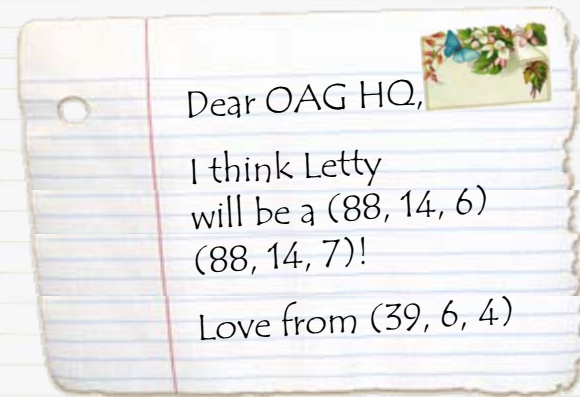 Dear OAG HQ,
I think Letty
will be a (88, 14, 6)
(88, 14, 7)!
Love from (39, 6, 4)